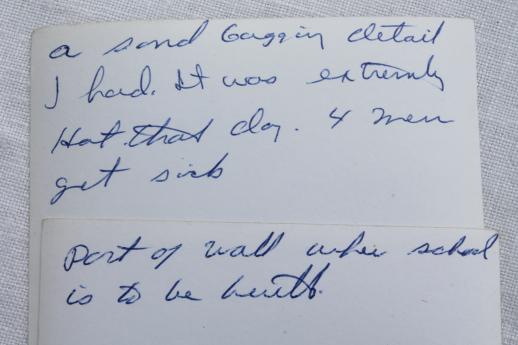 a sand bagging detail
I had. It was extremly
Hot that day. 4 men
get sick
Part of wall wher school
is to be built.